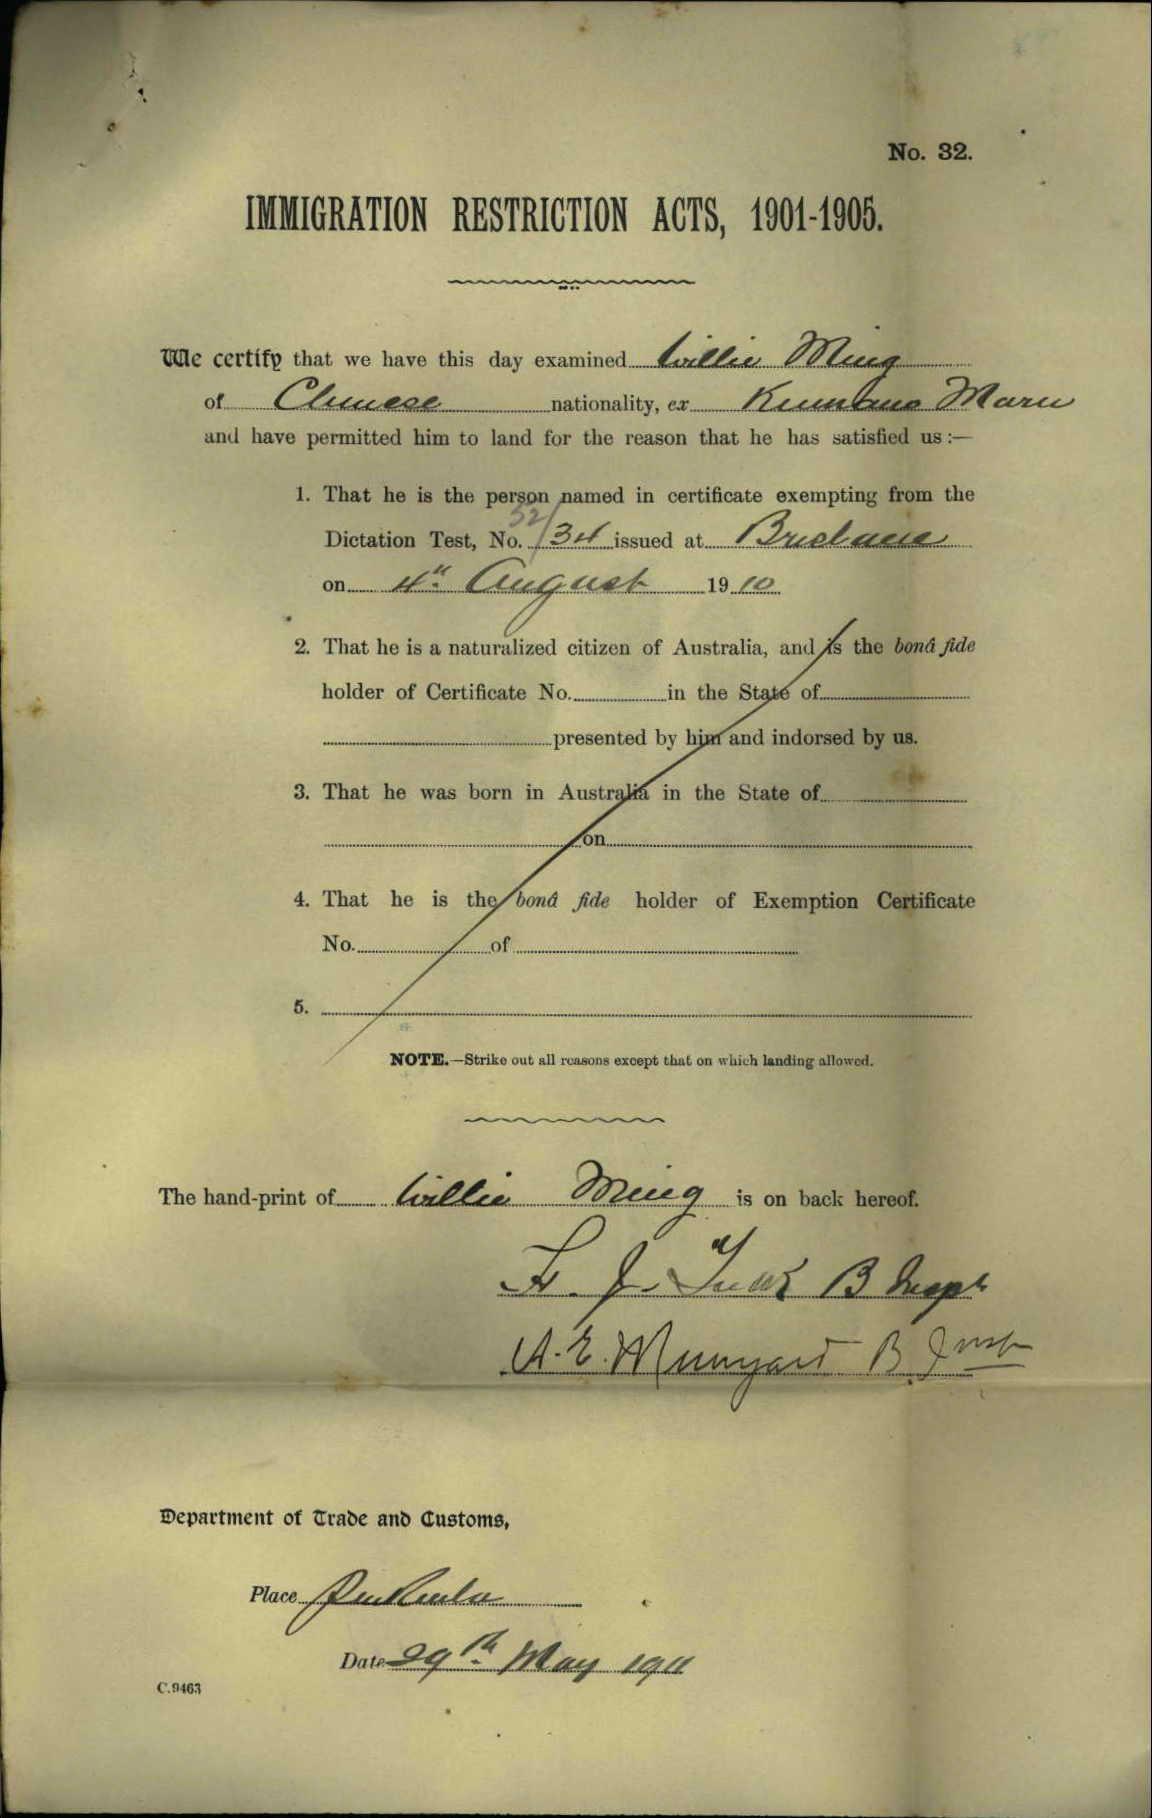 No. 32.
IMMIGRATION RESTRICTION ACTS, 1901-1905.
We certify that we have this day examined Willie Ming
of Chinese nationality, ex Kumano Maru
and have permitted him to land for the reason that he has satisfied us :—
1. That he is the person named in certificate exempting from the
52/
Dictation Test, No. 34 issued at Brisbane
on 4th August 1910
2. That he is a naturalized citizen of Australia, and is the bonâ fide
holder of Certificate No. in the State of
presented by him and indorsed by us.
3. That he was born in Australia in the State of
on
4. That he is the bonâ fide holder of Exemption Certificate
No. of
5.
NOTE.—Strike out all reasons except that on which landing allowed.
The hand-print of Willie Ming is on back hereof.
J. B
A. E. B.
Department of Trade and Customs,
Place Pinkenba
Date 29th May 1911
C.9463